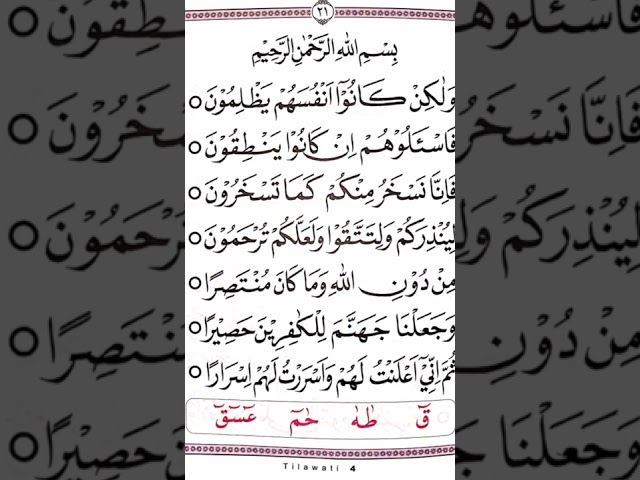 ٢١
بِسْمِ اللهِ الرَّحْمٰنِ الرَّحِيْمِ
وَلٰكِنْ كَانُوْٓا اَنْفُسَهُمْ يَظْلِمُوْنَ ○
فَاسْـَٔلُوْهُمْ اِنْ كَانُوْا يَنْطِقُوْنَ ○
فَاِنَّا نَسْخَرُ مِنْكُمْ كَمَا تَسْخَرُوْنَ ○
لِيُنْذِرَكُمْ وَلِتَتَّقُوْا وَلَعَلَّكُمْ تُرْحَمُوْنَ ○
مِنْ دُوْنِ اللهِ وَمَا كَانَ مُنْتَصِرًا ○
وَجَعَلْنَا جَهَنَّمَ لِلْكٰفِرِيْنَ حَصِيْرًا ○
ثُمَّ اِنِّيْٓ اَعْلَنْتُ لَهُمْ وَاَسْرَرْتُ لَهُمْ اِسْرَارًا ○
قٓ طٰهٰ حٰمٓ عٓسٓقٓ
Tilawati 4